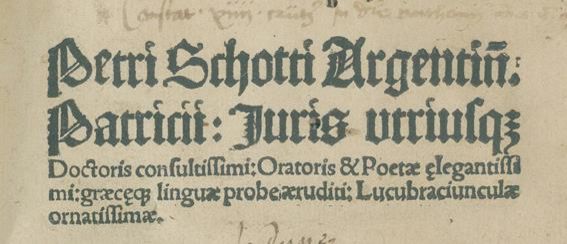 Petri Schotti Argentin̄.
Patricii: Juris vtriusqꝫ
Doctoris consultissimi: Oratoris & Poetæ ęlegantissi
mi: græcęqꝫ linguæ probe æruditi: Lucubraciunculæ
ornatissimæ.